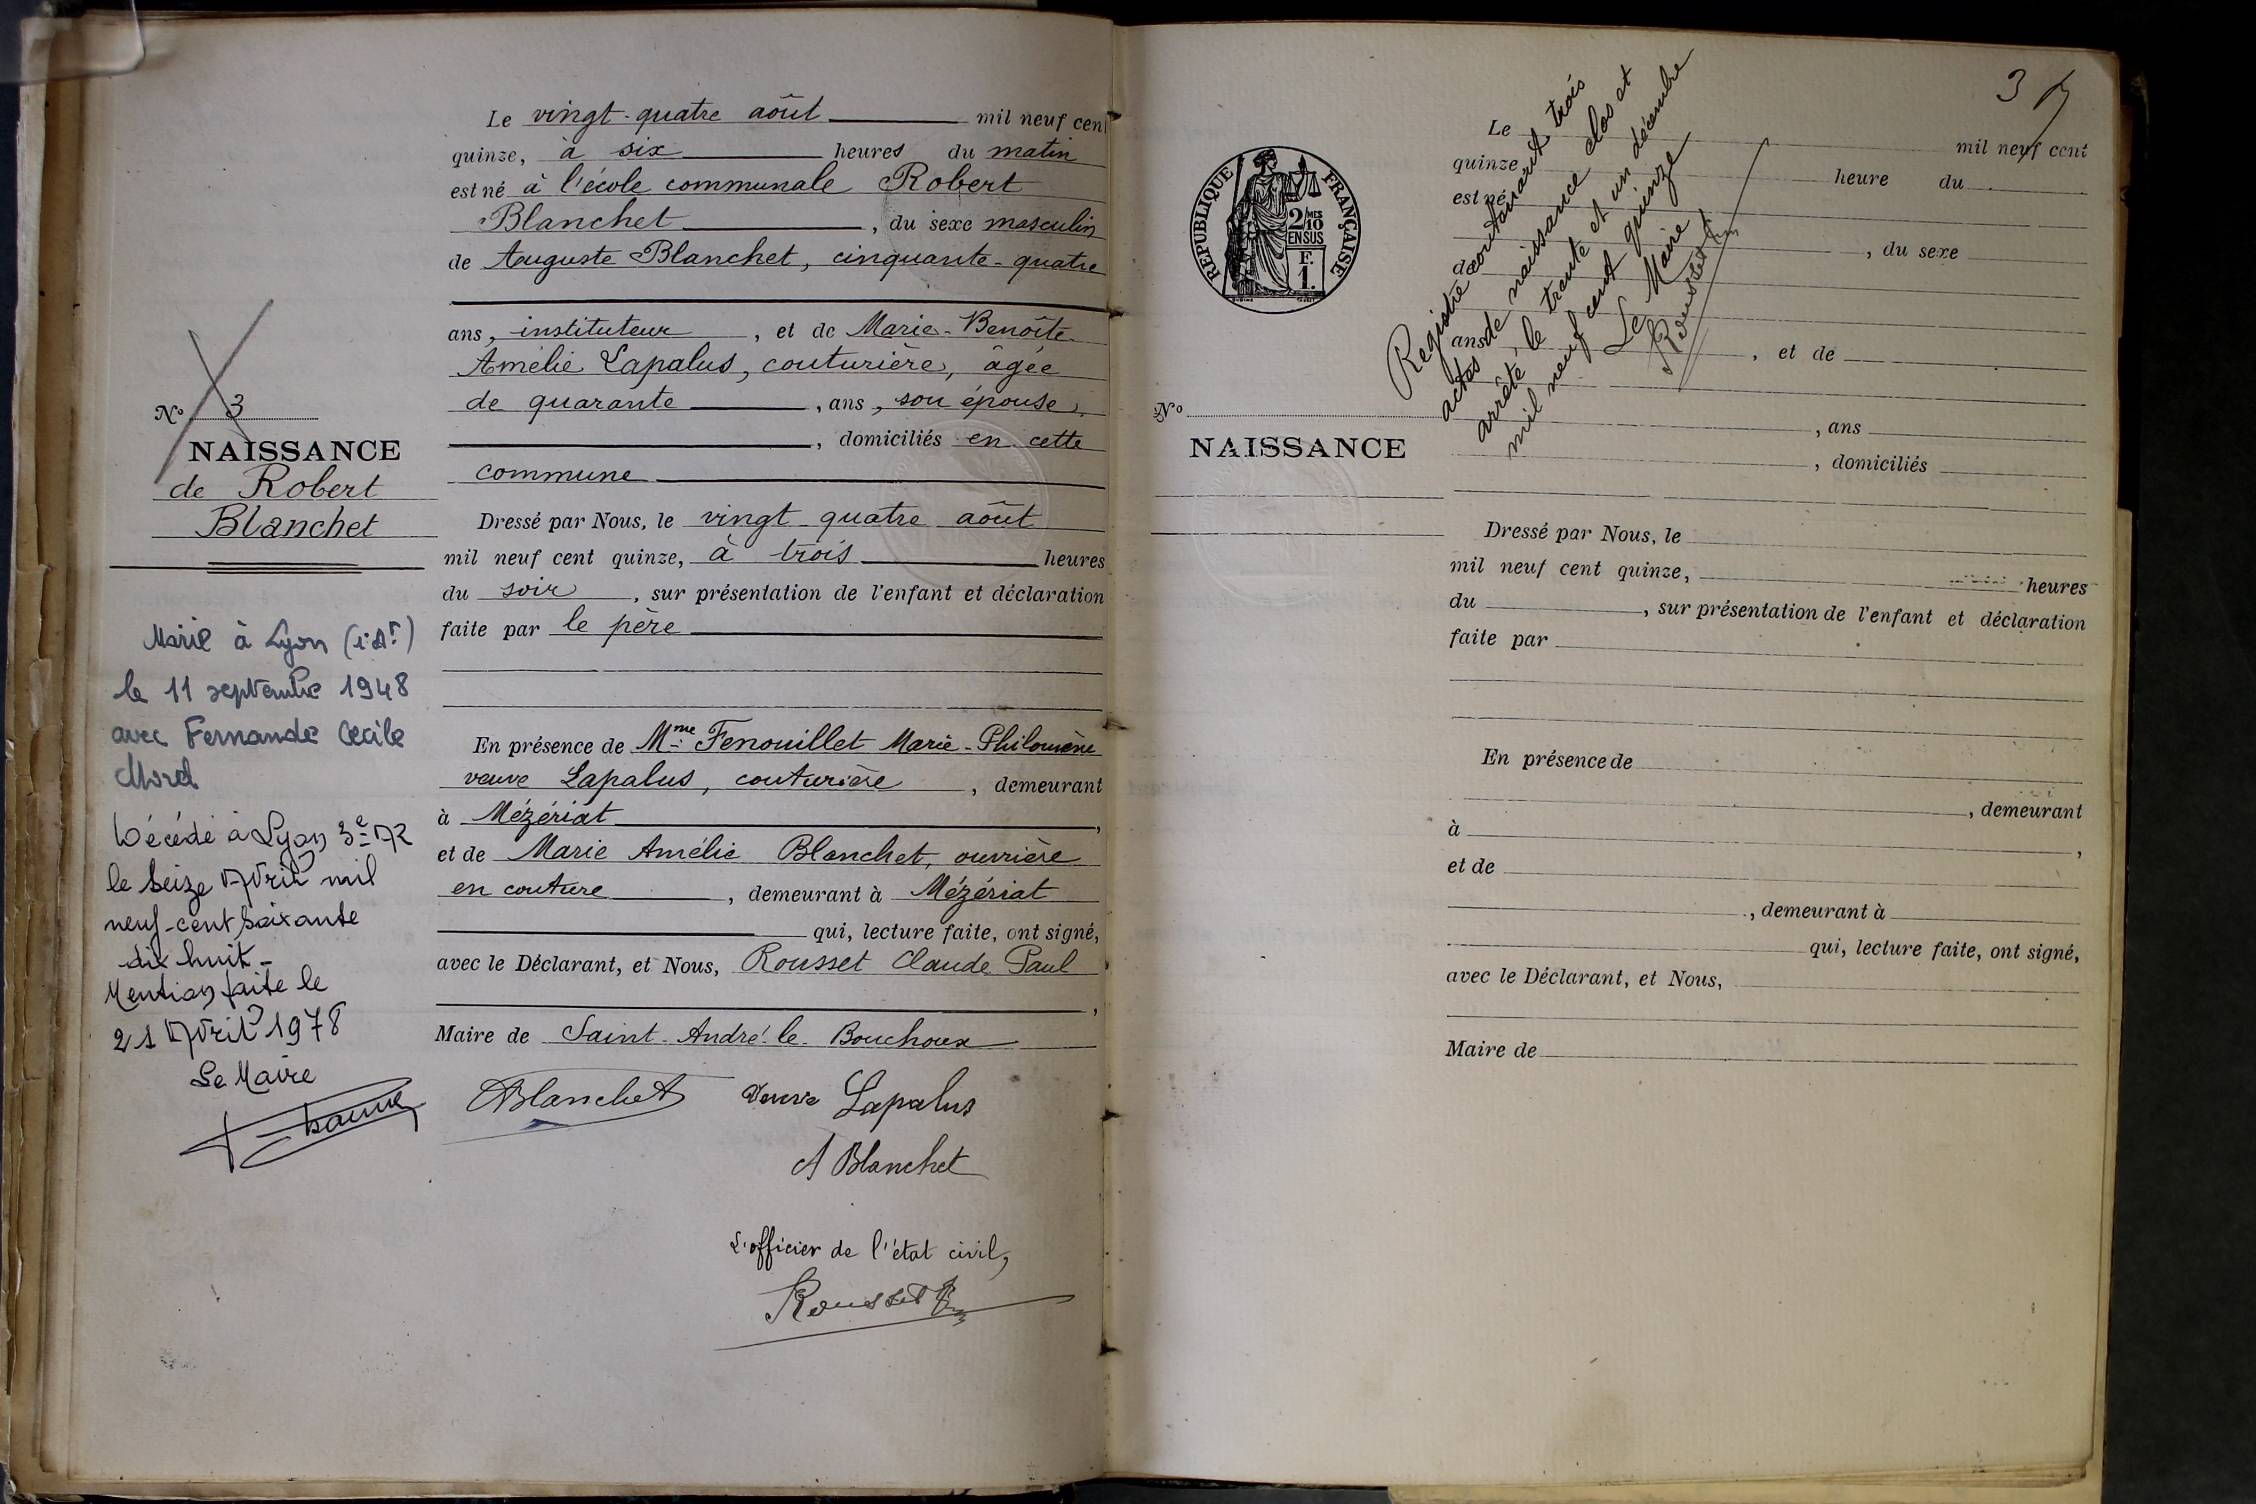 Le vingt-quatre août mil neuf cent
quinze, à six heures du matin
est né à l'école communale Robert
Blanchet, du sexe masculin
de Auguste Blanchet, cinquante-quatre
ans, instituteur, et de Marie-Benoîte-
Amélie Lapalus, couturière, âgée
de quarante, ans, son épouse,
, domiciliés en cette
commune
Dressé par Nous, le vingt quatre août
mil neuf cent quinze, à trois heures
du soir, sur présentation de l'enfant et déclaration
faite par le père
En présence de Mme Fenouillet Marie-Philomène
veuve Lapalus, couturière, demeurant
à Mézériat,
et de Marie Amélie Blanchet, ouvrière
en couture, demeurant à Mézériat
qui, lecture faite, ont signé,
avec le Déclarant, et Nous, Rousset Claude Paul
,
Maire de Saint-André-le-Bouchoux
ABlanchet Veuve Lapalus
A Blanchet
L'officier de l'état civil,
Rousset
No 3
NAISSANCE
de Robert
Blanchet
Marié à Lyon (1er Art)
le 11 septembre 1948
avec Fernande Cécile
Morel
Décédé à Lyon 3e AR
le Seize Avril mil
neuf-cent soixante
dix huit-
Mention faite le
21 Avril 1978
Le Maire
3
RÉPUBLIQUE FRANÇAISE
2/10 MES
EN SUS
F.
1.
No
NAISSANCE
Registre contenant trois
actes de naissance clos et
arrêté, le trente et un décembre
mil neuf cent quinze
Le Maire
Rousset
Le mil neuf cent
quinze heure du
est né
, du sexe
de
ans , et de
, ans
, domiciliés
Dressé par Nous, le
mil neuf cent quinze, heures
du , sur présentation de l'enfant et déclaration
faite par
En présence de
, demeurant
à ,
et de
, demeurant à
qui, lecture faite, ont signé,
avec le Déclarant, et Nous,
Maire de